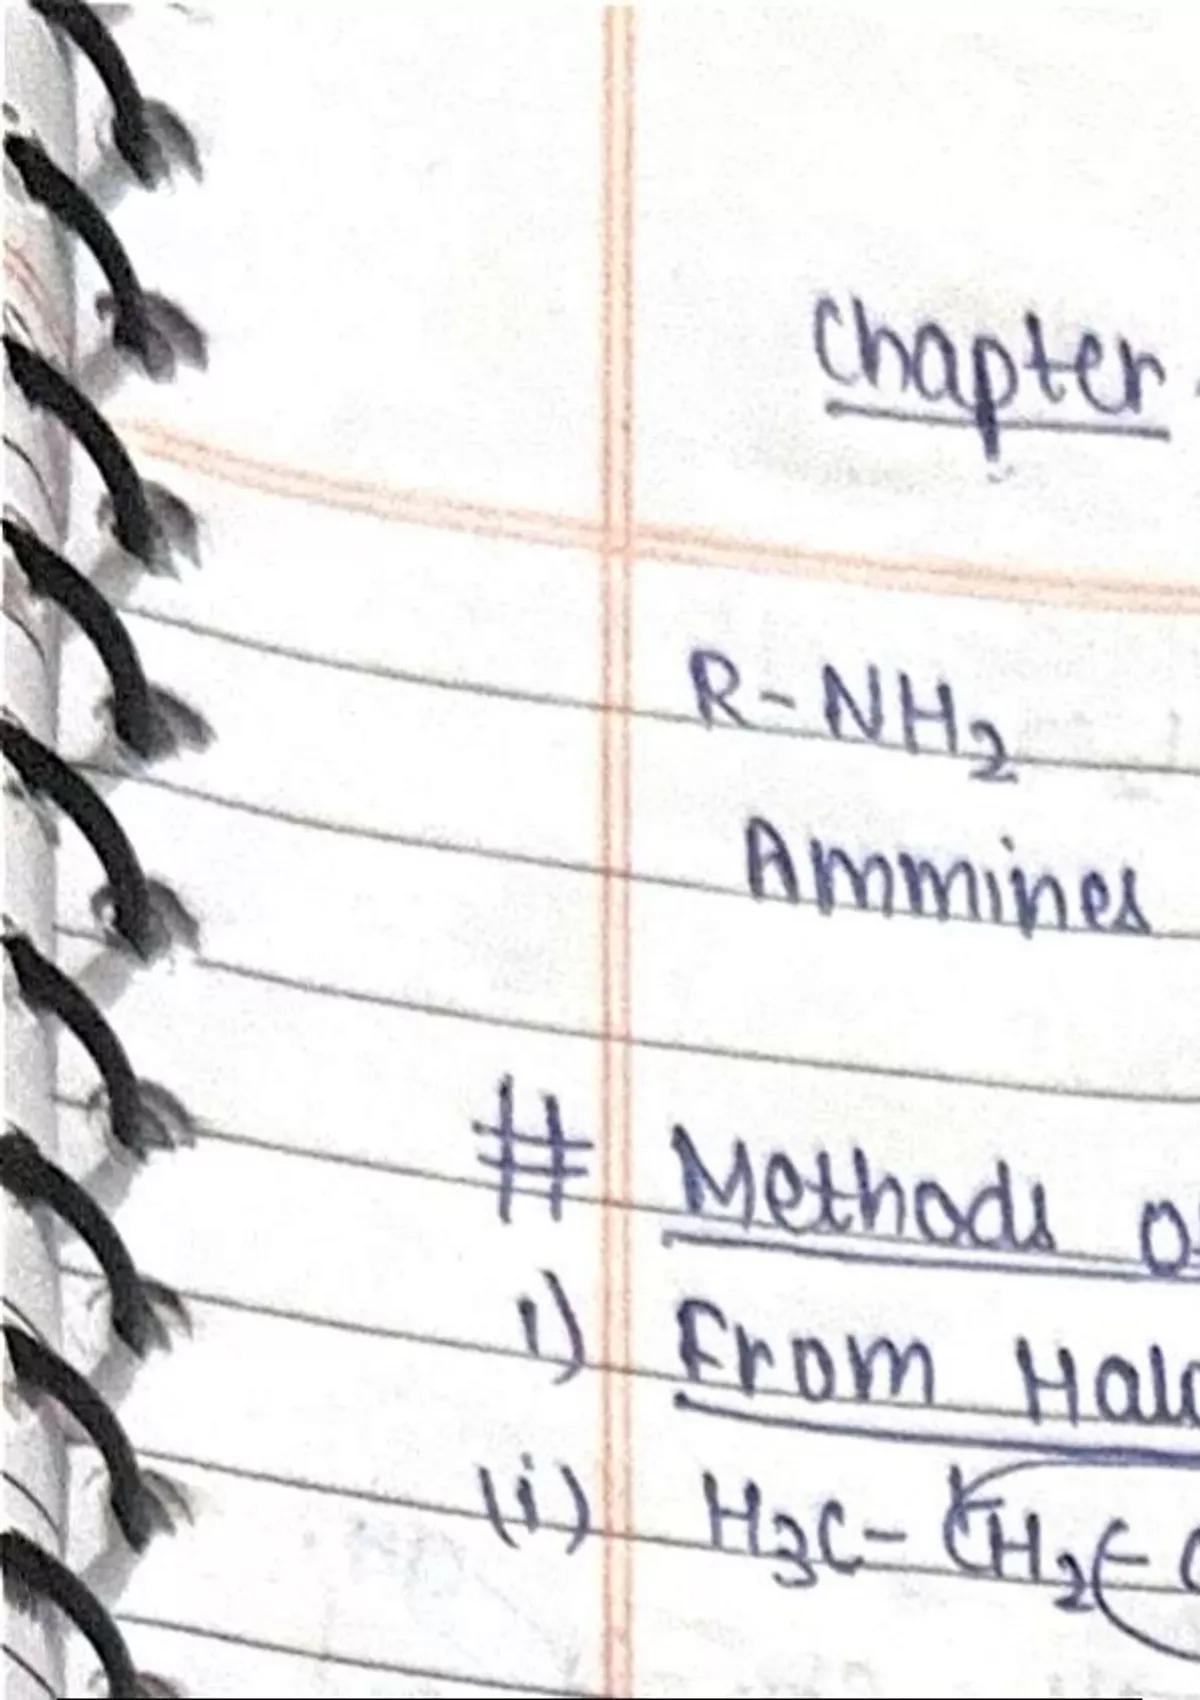 Chapter
R-NH2
Ammines
# Methods
1) From
(i) H3C- CH2-